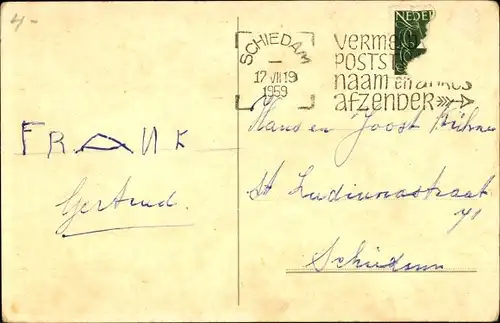 4-
SCHIEDAM
17 VII 19
1959
NEDER
VERME
POSTST
NAAM EN
AFZENDER
FRANK
Gertrud.
Hans en Joost
St Liduinastraat
71
Schiedam